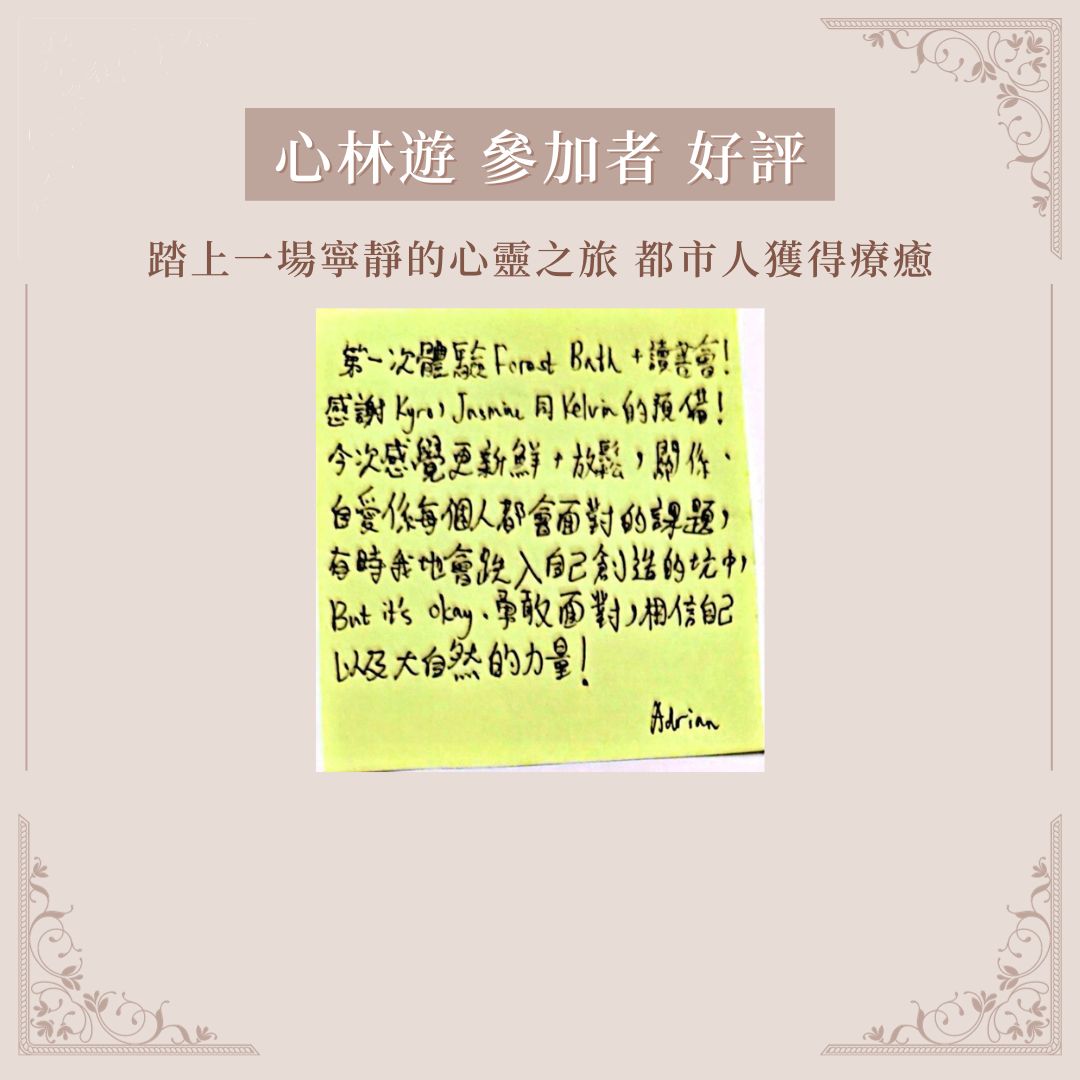 心林遊 參加者 好評
踏上一場寧靜的心靈之旅 都市人獲得療癒
第一次體驗 Forest Bath + 讀書會!
感謝 Kyro, Jasmine 同 Kelvin 的預備!
今次感覺更新鮮,放鬆,關係、
自愛係每個人都會面對的課題,
有時我地會跌入自己創造的坑中,
But it's okay. 勇敢面對,相信自己
以及大自然的力量!
Adrian